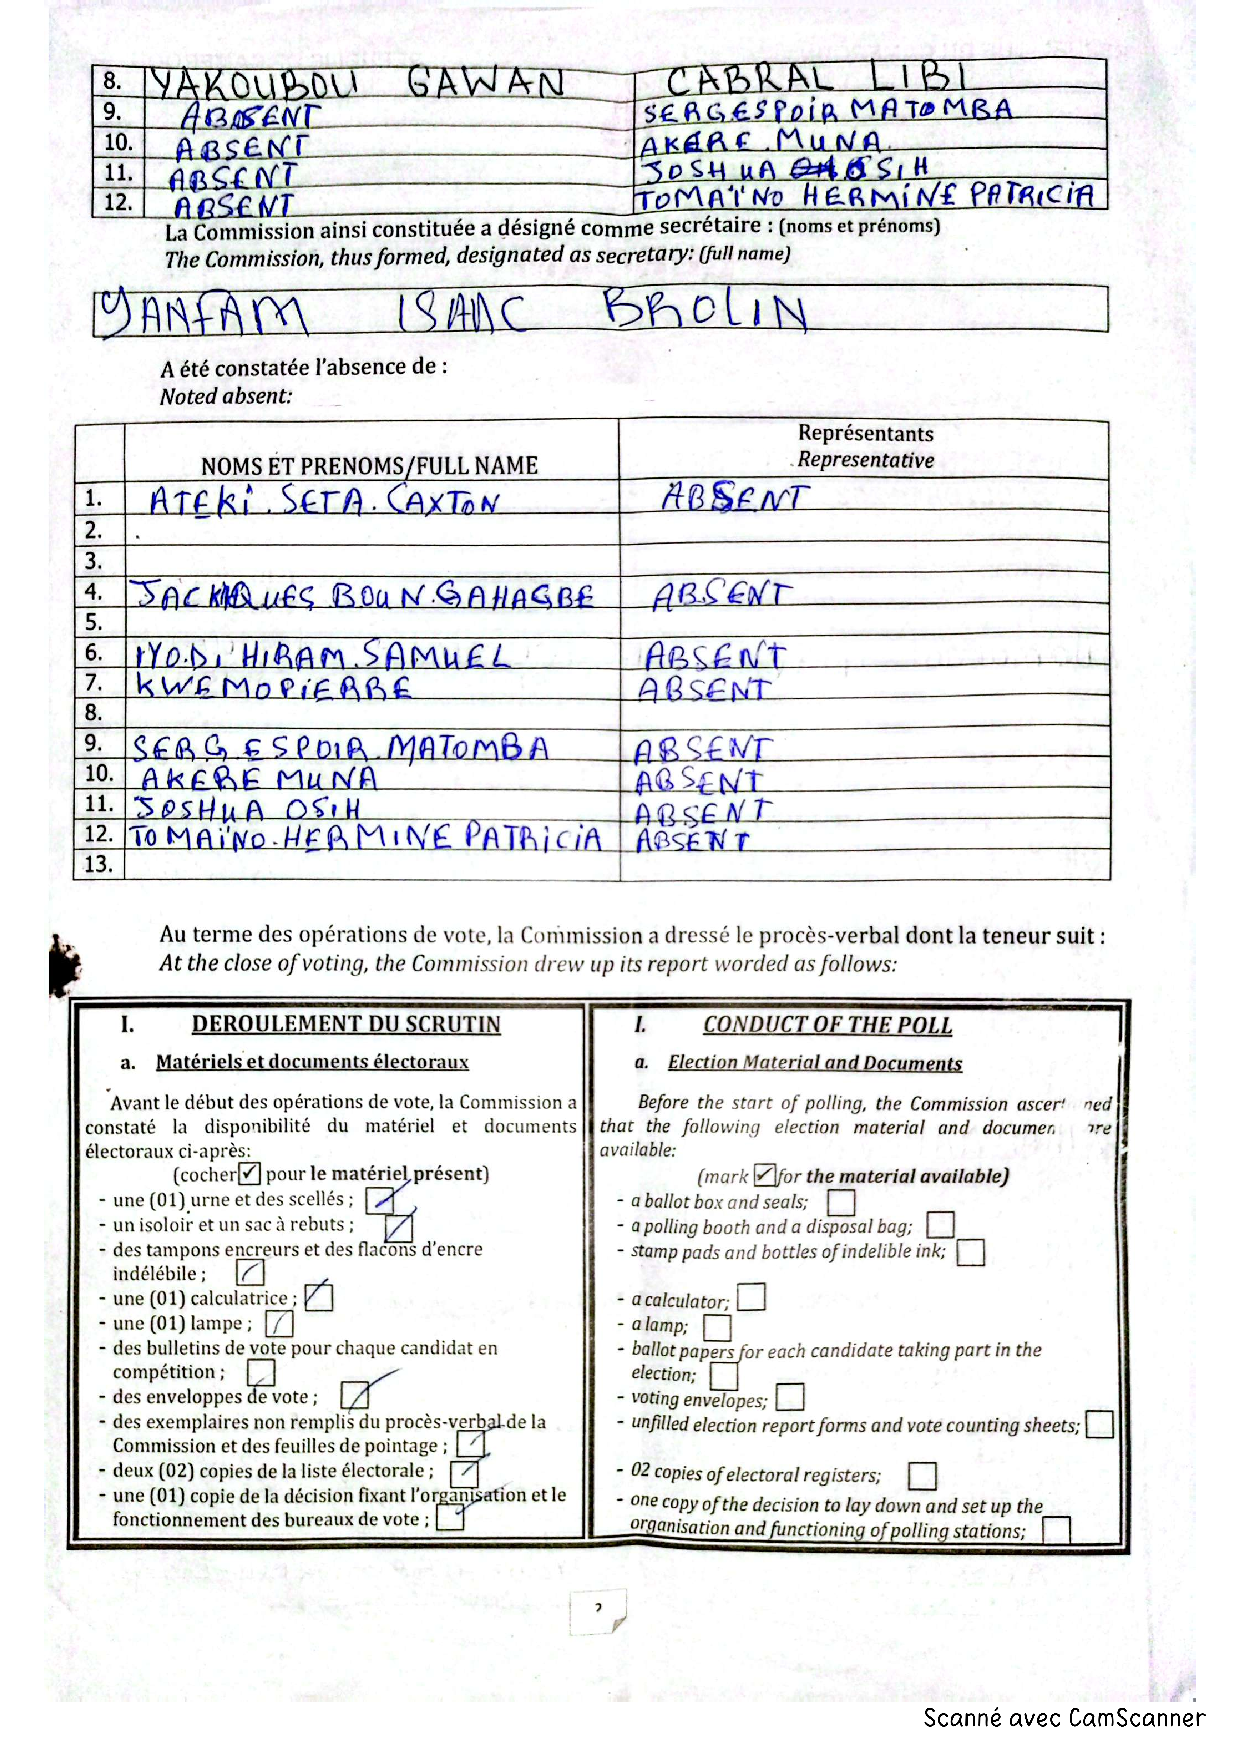 8. YAKOUBOU GAWAN CABRAL LIBI
9. ABSENT SERGESPOIR MATOMBA
10. ABSENT AKERE MUNA
11. ABSENT JOSHUA OSIH
12. ABSENT TOMAÏNO HERMINE PATRICIA
La Commission ainsi constituée a désigné comme secrétaire : (noms et prénoms)
The Commission, thus formed, designated as secretary: (full name)
YANFAM ISAAC BROLIN
A été constatée l'absence de :
Noted absent:
Représentants
NOMS ET PRENOMS/FULL NAME Representative
1. ATEKI. SETA. CAXTON ABSENT
2.
3.
4. JACKQUES BOUN.GAHAGBE ABSENT
5.
6. IYO.DI HIRAM.SAMUEL ABSENT
7. KWEMO PIERRE ABSENT
8.
9. SERG ESPOIR MATOMBA ABSENT
10. AKERE MUNA ABSENT
11. JOSHUA OSIH ABSENT
12. TOMAÏNO.HERMINE PATRICIA ABSENT
13.
Au terme des opérations de vote, la Commission a dressé le procès-verbal dont la teneur suit :
At the close of voting, the Commission drew up its report worded as follows:
I. DEROULEMENT DU SCRUTIN
a. Matériels et documents électoraux
Avant le début des opérations de vote, la Commission a
constaté la disponibilité du matériel et documents
électoraux ci-après:
(cocher ✓ pour le matériel présent)
- une (01) urne et des scellés ;
- un isoloir et un sac à rebuts ;
- des tampons encreurs et des flacons d'encre
indélébile ;
- une (01) calculatrice ;
- une (01) lampe ;
- des bulletins de vote pour chaque candidat en
compétition ;
- des enveloppes de vote ;
- des exemplaires non remplis du procès-verbal de la
Commission et des feuilles de pointage ;
- deux (02) copies de la liste électorale ;
- une (01) copie de la décision fixant l'organisation et le
fonctionnement des bureaux de vote ;
I. CONDUCT OF THE POLL
a. Election Material and Documents
Before the start of polling, the Commission ascert ned
that the following election material and documen re
available:
(mark ✓ for the material available)
- a ballot box and seals;
- a polling booth and a disposal bag;
- stamp pads and bottles of indelible ink;
- a calculator;
- a lamp;
- ballot papers for each candidate taking part in the
election;
- voting envelopes;
- unfilled election report forms and vote counting sheets;
- 02 copies of electoral registers;
- one copy of the decision to lay down and set up the
organisation and functioning of polling stations;
2
Scanné avec CamScanner